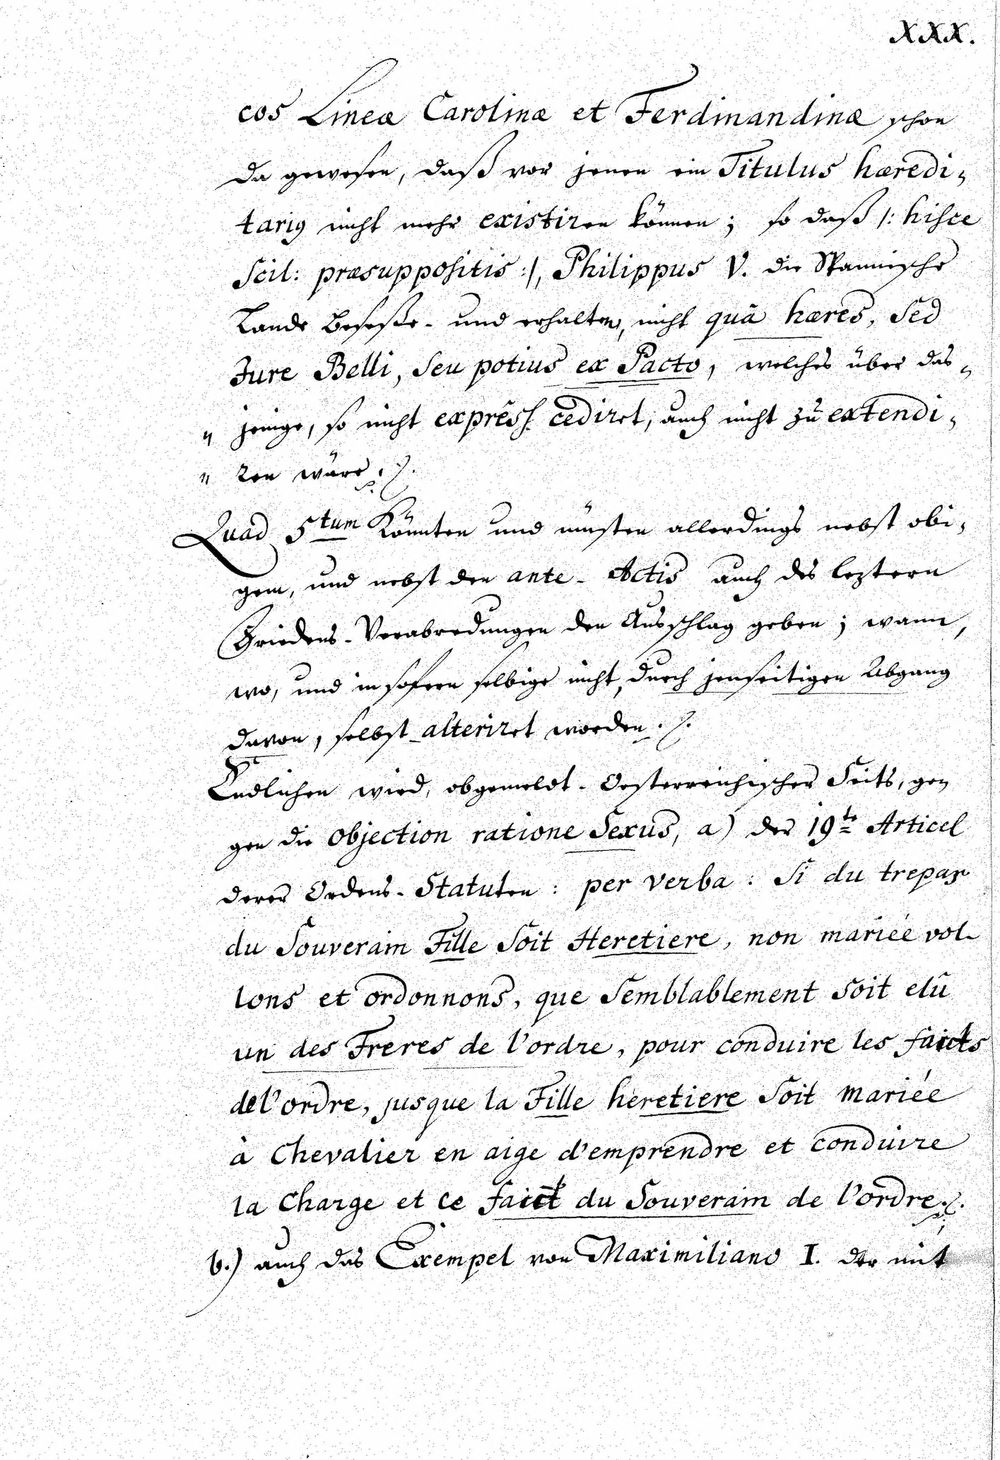 XXX.
cos Lineæ Carolinæ et Ferdinandinæ schon
da gewesen, daß vor jenen ein Titulus hæredi-
tarig nicht mehr existiren können; so daß /: hisce
Scil: præsuppositis :/, Philippus V. die Spannische
Lande Besesse- und erhalten, nicht quà hæres, Sed
Jure Belli, Seu potius ex Pacto, welches über das-
" jenige, so nicht express. cediret, auch nicht zu extendi-
" ren wäre.
Quad 5tum Könnten und müsten allerdings nebst obi-
gem, und nebst den ante-Actis auch des leztern
Friedens-Verabredungen den Ausschlag geben; wann,
wo, und in sofern selbige nicht durch jenseitigen Abgang
davon, selbst alteriret worden.
Endlichen wird, obgemeldt-Oesterreichischer Seits, geg
gen die Objection ratione Sexus, a) der 19te Articel
derer Ordens-Statuten: per verba: Si du trepas
du Souverain Fille Soit Heretiere, non mariée vol-
lons et ordonnons, que Semblablement Soit elû
un des Freres de l'ordre, pour conduire les faicts
del'ordre, jusque la Fille heretiere Soit mariée
à Chevalier en aige d'emprendre et conduire
la Charge et ce faict du Souverain de l'ordre.
b.) auch das Exempel von Maximiliano I. der mit